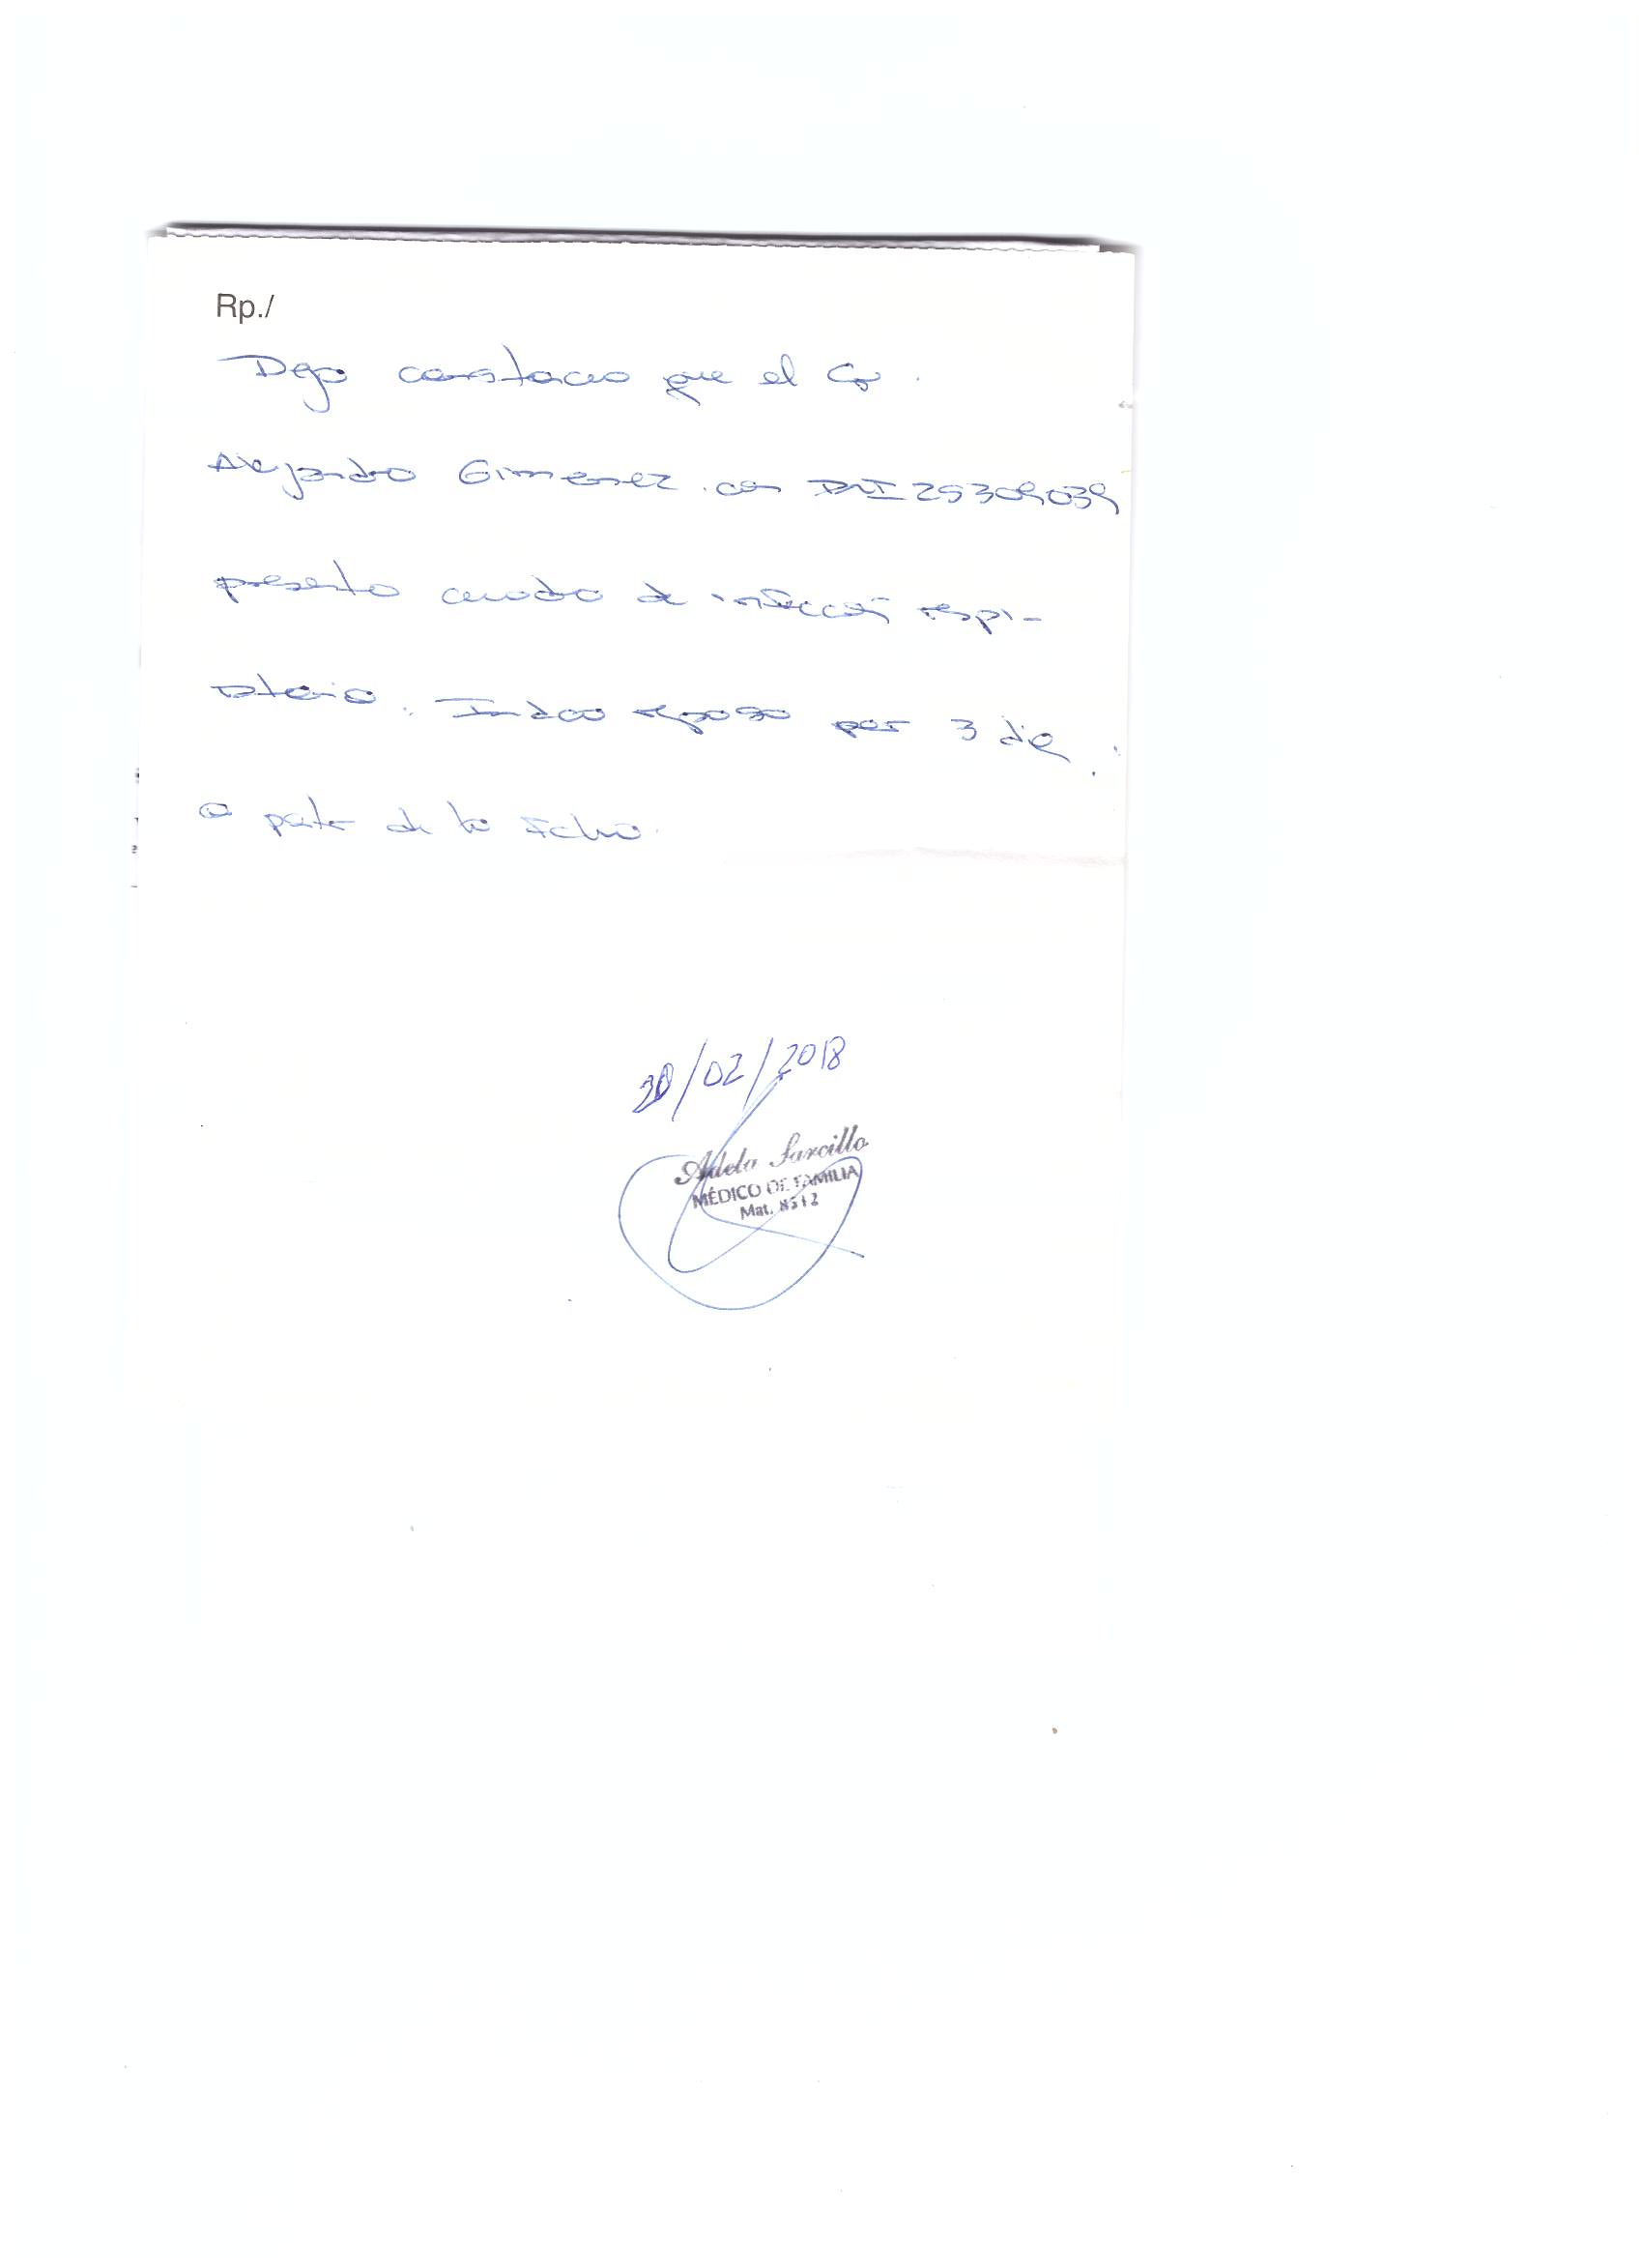 Rp./
Dejo constancia que el Sr.
Alejandro Gimenez con DNI 25309039
presenta cuadro de infección respi-
ratoria. Indico reposo por 3 días
a partir de la fecha.
/02/2018
Adela Sarcillo
MÉDICO DE FAMILIA
Mat. 8512